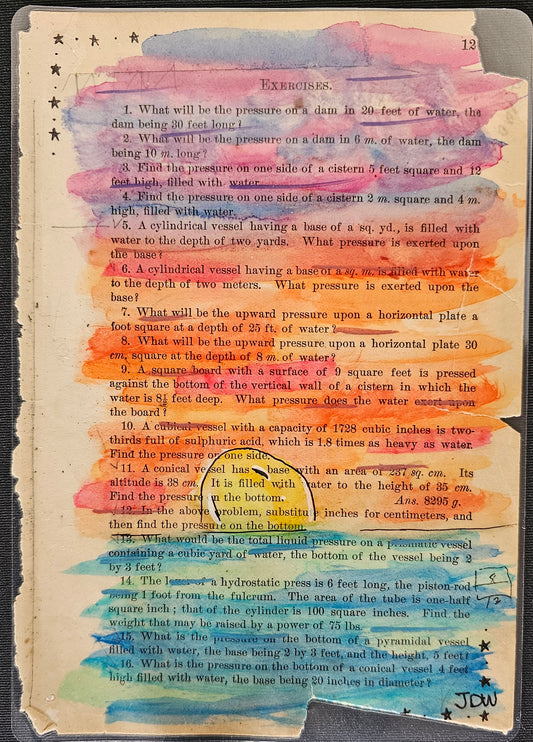 12
EXERCISES.
1. What will be the pressure on a dam in 20 feet of water, the
dam being 30 feet long?
2. What will be the pressure on a dam in 6 m. of water, the dam
being 10 m. long?
3. Find the pressure on one side of a cistern 5 feet square and 12
feet high, filled with water.
4. Find the pressure on one side of a cistern 2 m. square and 4 m.
high, filled with water.
5. A cylindrical vessel having a base of a sq. yd., is filled with
water to the depth of two yards. What pressure is exerted upon
the base?
6. A cylindrical vessel having a base of a sq. m. is filled with water
to the depth of two meters. What pressure is exerted upon the
base?
7. What will be the upward pressure upon a horizontal plate a
foot square at a depth of 25 ft. of water?
8. What will be the upward pressure upon a horizontal plate 30
cm. square at the depth of 8 m. of water?
9. A square board with a surface of 9 square feet is pressed
against the bottom of the vertical wall of a cistern in which the
water is 8½ feet deep. What pressure does the water exert upon
the board?
10. A cubical vessel with a capacity of 1728 cubic inches is two-
thirds full of sulphuric acid, which is 1.8 times as heavy as water.
Find the pressure on one side.
11. A conical vessel has base with an area of 237 sq. cm. Its
altitude is 38 cm. It is filled with water to the height of 35 cm.
Find the pressure on the bottom. Ans. 8295 g.
12. In the above problem, substitute inches for centimeters, and
then find the pressure on the bottom.
13. What would be the total liquid pressure on a prismatic vessel
containing a cubic yard of water, the bottom of the vessel being 2
by 3 feet?
14. The of a hydrostatic press is 6 feet long, the piston-rod
being 1 foot from the fulcrum. The area of the tube is one-half
square inch; that of the cylinder is 100 square inches. Find the
weight that may be raised by a power of 75 lbs.
15. What is the pressure on the bottom of a pyramidal vessel
filled with water, the base being 2 by 3 feet, and the height, 5 feet?
16. What is the pressure on the bottom of a conical vessel 4 feet
high filled with water, the base being 20 inches in diameter?
JDW